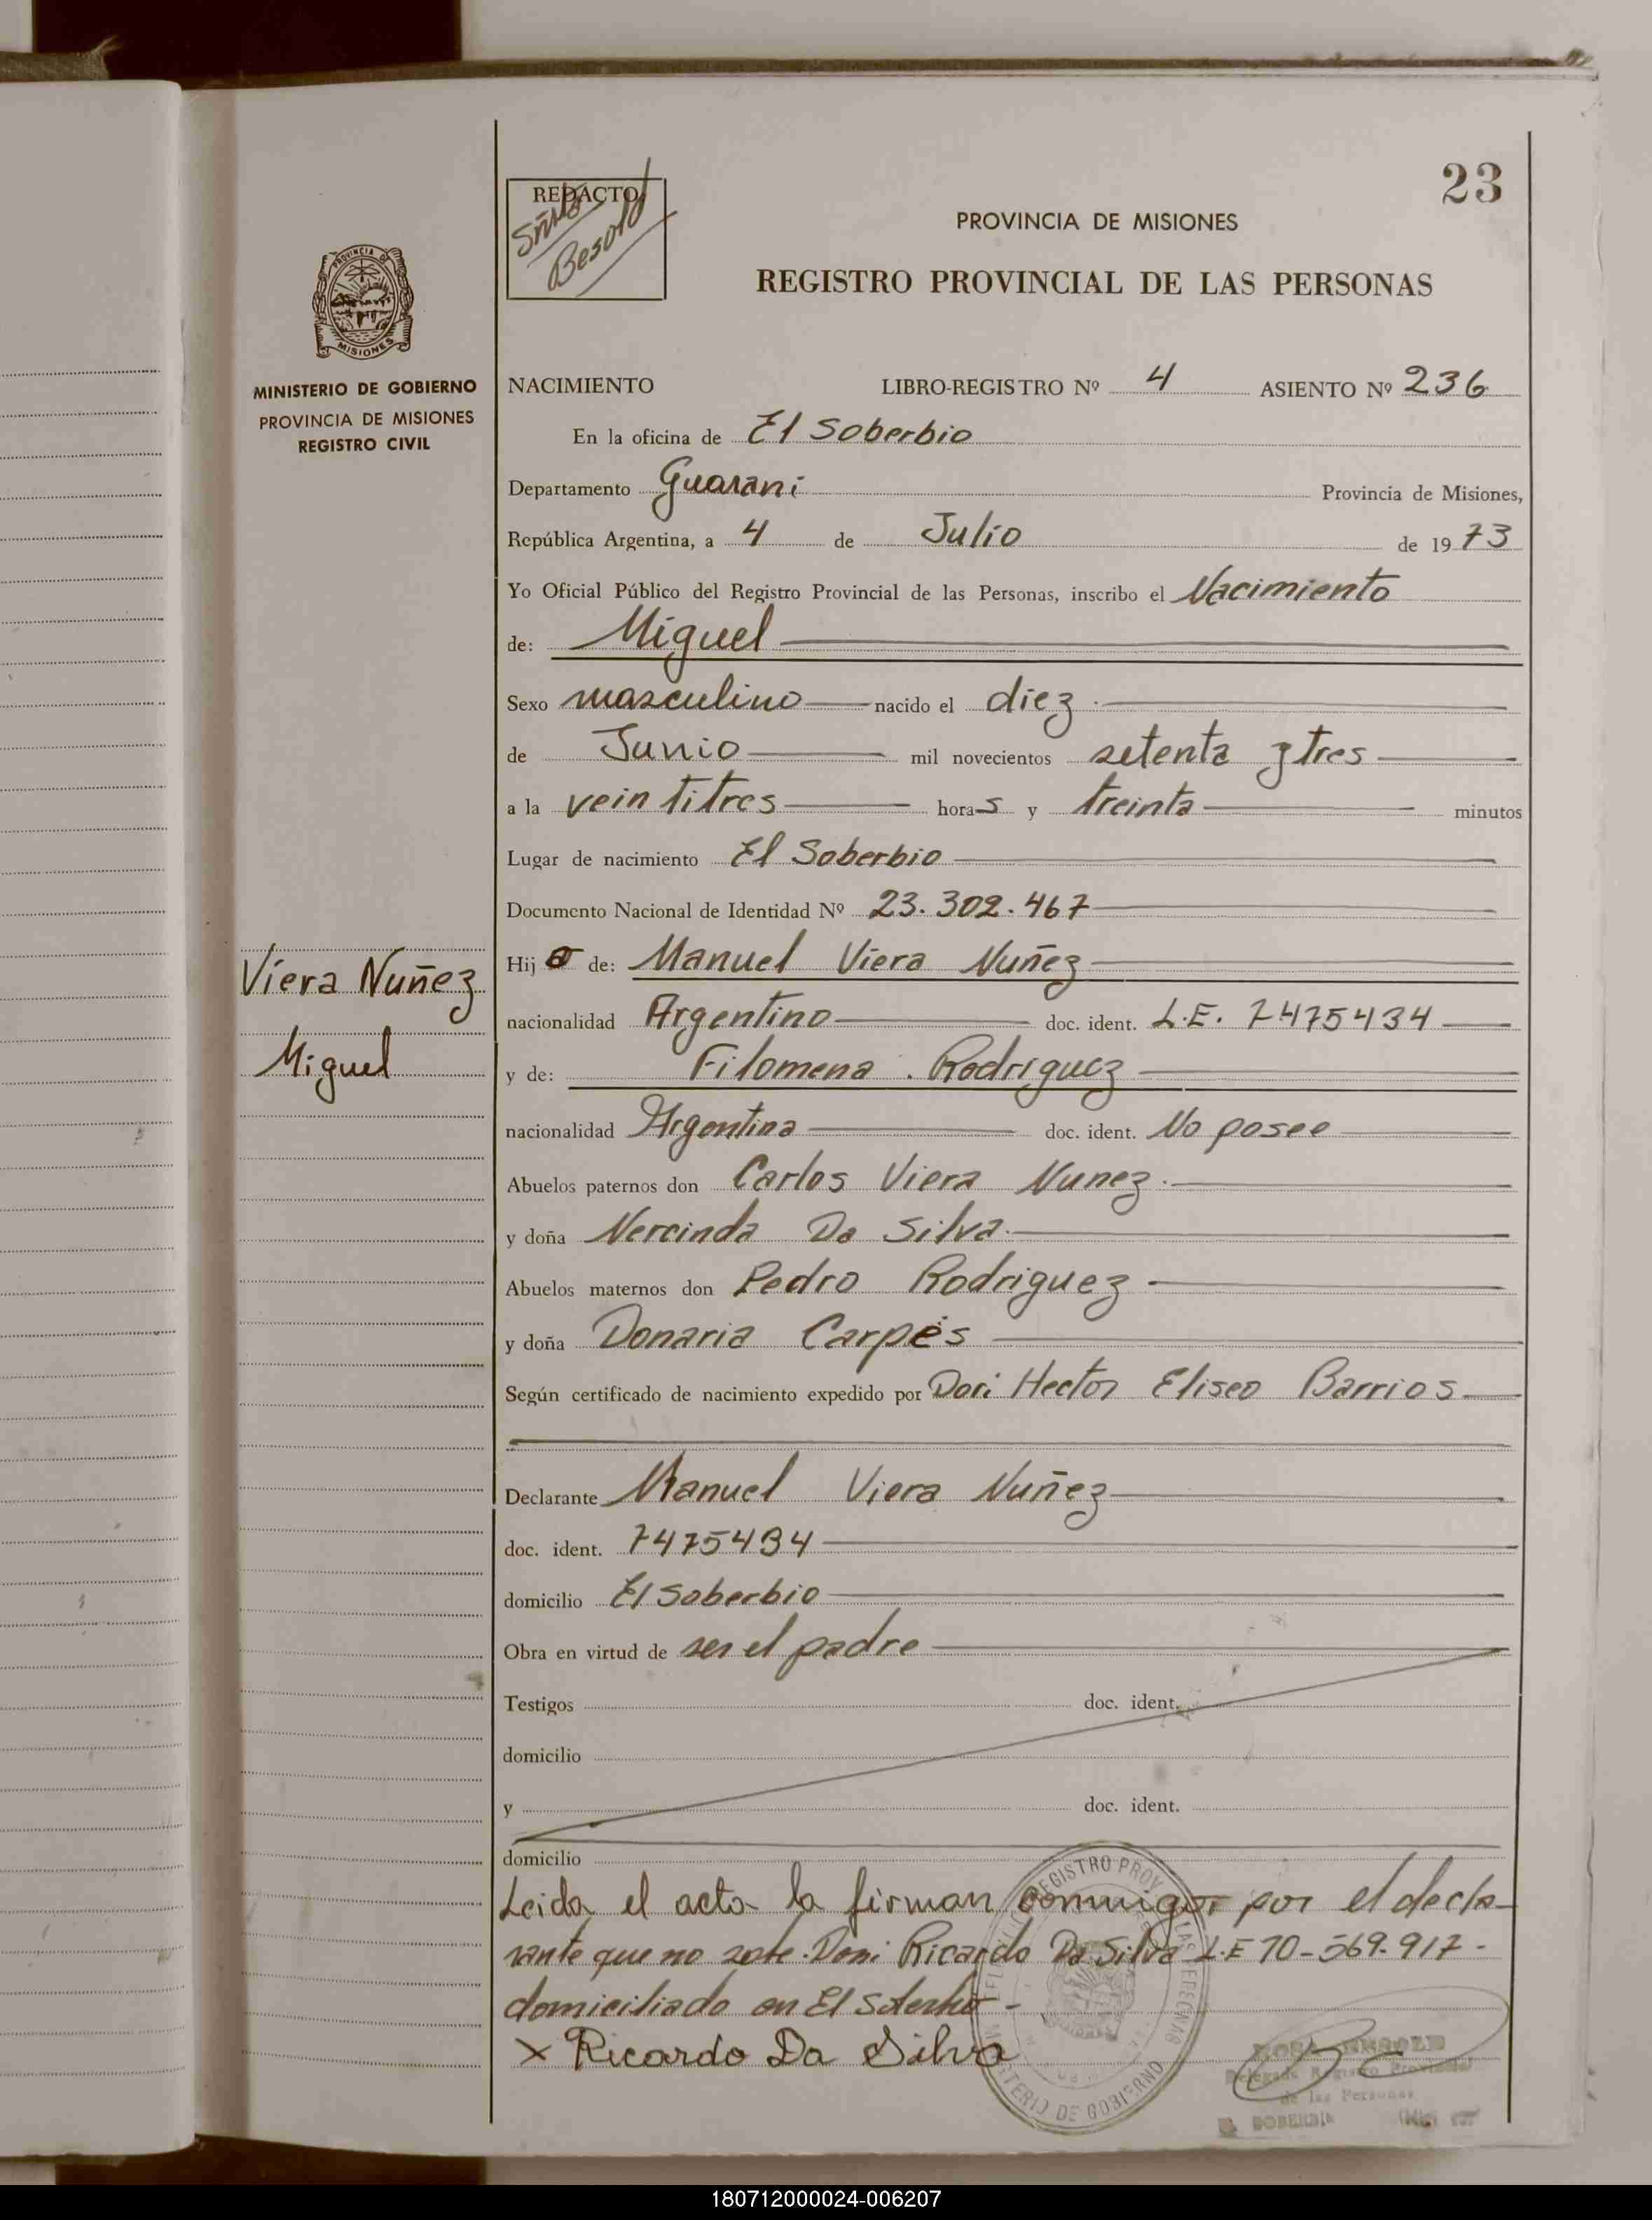 23
REDACTO
Besold
PROVINCIA DE MISIONES
REGISTRO PROVINCIAL DE LAS PERSONAS
PROVINCIA DE
MISIONES
MINISTERIO DE GOBIERNO
PROVINCIA DE MISIONES
REGISTRO CIVIL
NACIMIENTO LIBRO-REGISTRO Nº 4 ASIENTO Nº 236
En la oficina de El Soberbio
Departamento Guarani Provincia de Misiones,
República Argentina, a 4 de Julio de 1973
Yo Oficial Público del Registro Provincial de las Personas, inscribo el Nacimiento
de: Miguel
Sexo masculino nacido el diez
de Junio mil novecientos setenta y tres
a la veintitres horas y treinta minutos
Lugar de nacimiento El Soberbio
Documento Nacional de Identidad Nº 23.302.467
Viera Nuñez
Miguel
Hijo de: Manuel Viera Nuñez
nacionalidad Argentino doc. ident. L.E. 7475434
y de: Filomena Rodriguez
nacionalidad Argentina doc. ident. No posee
Abuelos paternos don Carlos Viera Nunez
y doña Nercinda Da Silva
Abuelos maternos don Pedro Rodriguez
y doña Donaria Carpés
Según certificado de nacimiento expedido por Don: Hector Eliseo Barrios
Declarante Manuel Viera Nuñez
doc. ident. 7475434
domicilio El Soberbio
Obra en virtud de ser el padre
Testigos doc. ident.
domicilio
y doc. ident.
domicilio
Leida el acta la firman conmigo por el decla-
rante que no sabe. Don: Ricardo Da Silva L.E 10-569.917-
domiciliado en El Soberbio-
x Ricardo Da Silva
REGISTRO PROV LAS PERSONAS
MINISTERIO DE GOBIERNO
Delegada Registro Provincial
de las Personas
180712000024-006207